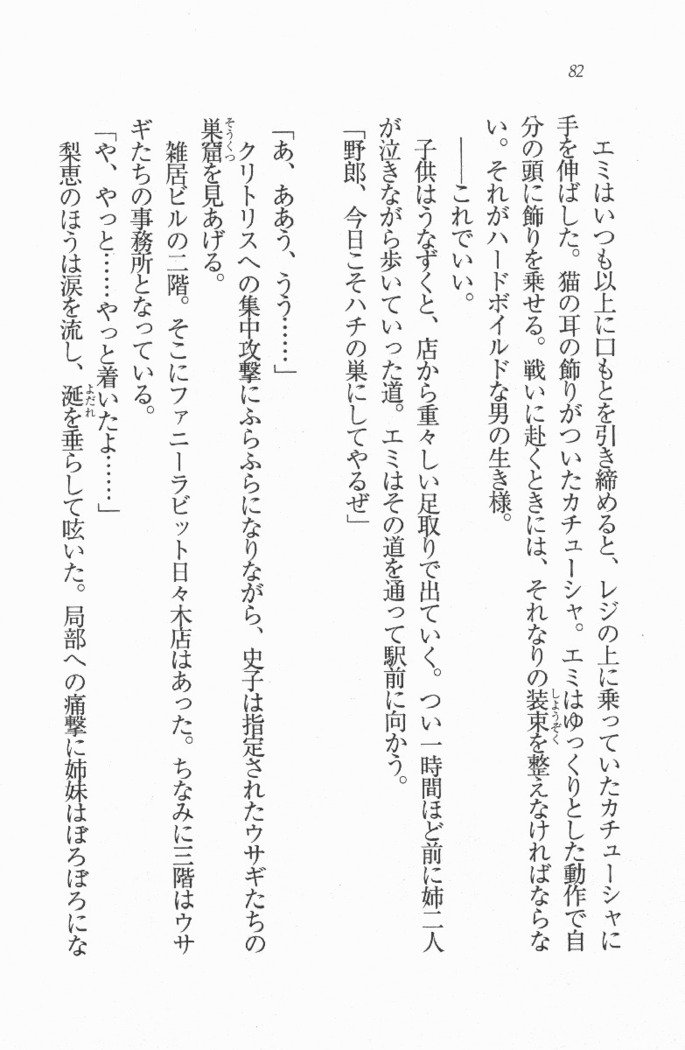 82
エミはいつも以上に口もとを引き締めると、レジの上に乗っていたカチューシャに
手を伸ばした。猫の耳の飾りがついたカチューシャ。エミはゆっくりとした動作で自
分の頭に飾りを乗せる。戦いに赴くときには、それなりの装束を整えなければならな
い。それがハードボイルドな男の生き様。
――これでいい。
子供はうなずくと、店から重々しい足取りで出ていく。つい一時間ほど前に姉二人
が泣きながら歩いていった道。エミはその道を通って駅前に向かう。
「野郎、今日こそハチの巣にしてやるぜ」
「あ、ああう、うう……」
クリトリスへの集中攻撃にふらふらになりながら、史子は指定されたウサギたちの
巣窟を見あげる。
雑居ビルの二階。そこにファニーラビット日々木店はあった。ちなみに三階はウサ
ギたちの事務所となっている。
「や、やっと……やっと着いたよ……」
梨恵のほうは涙を流し、涎を垂らして呟いた。局部への痛撃に姉妹はぼろぼろにな